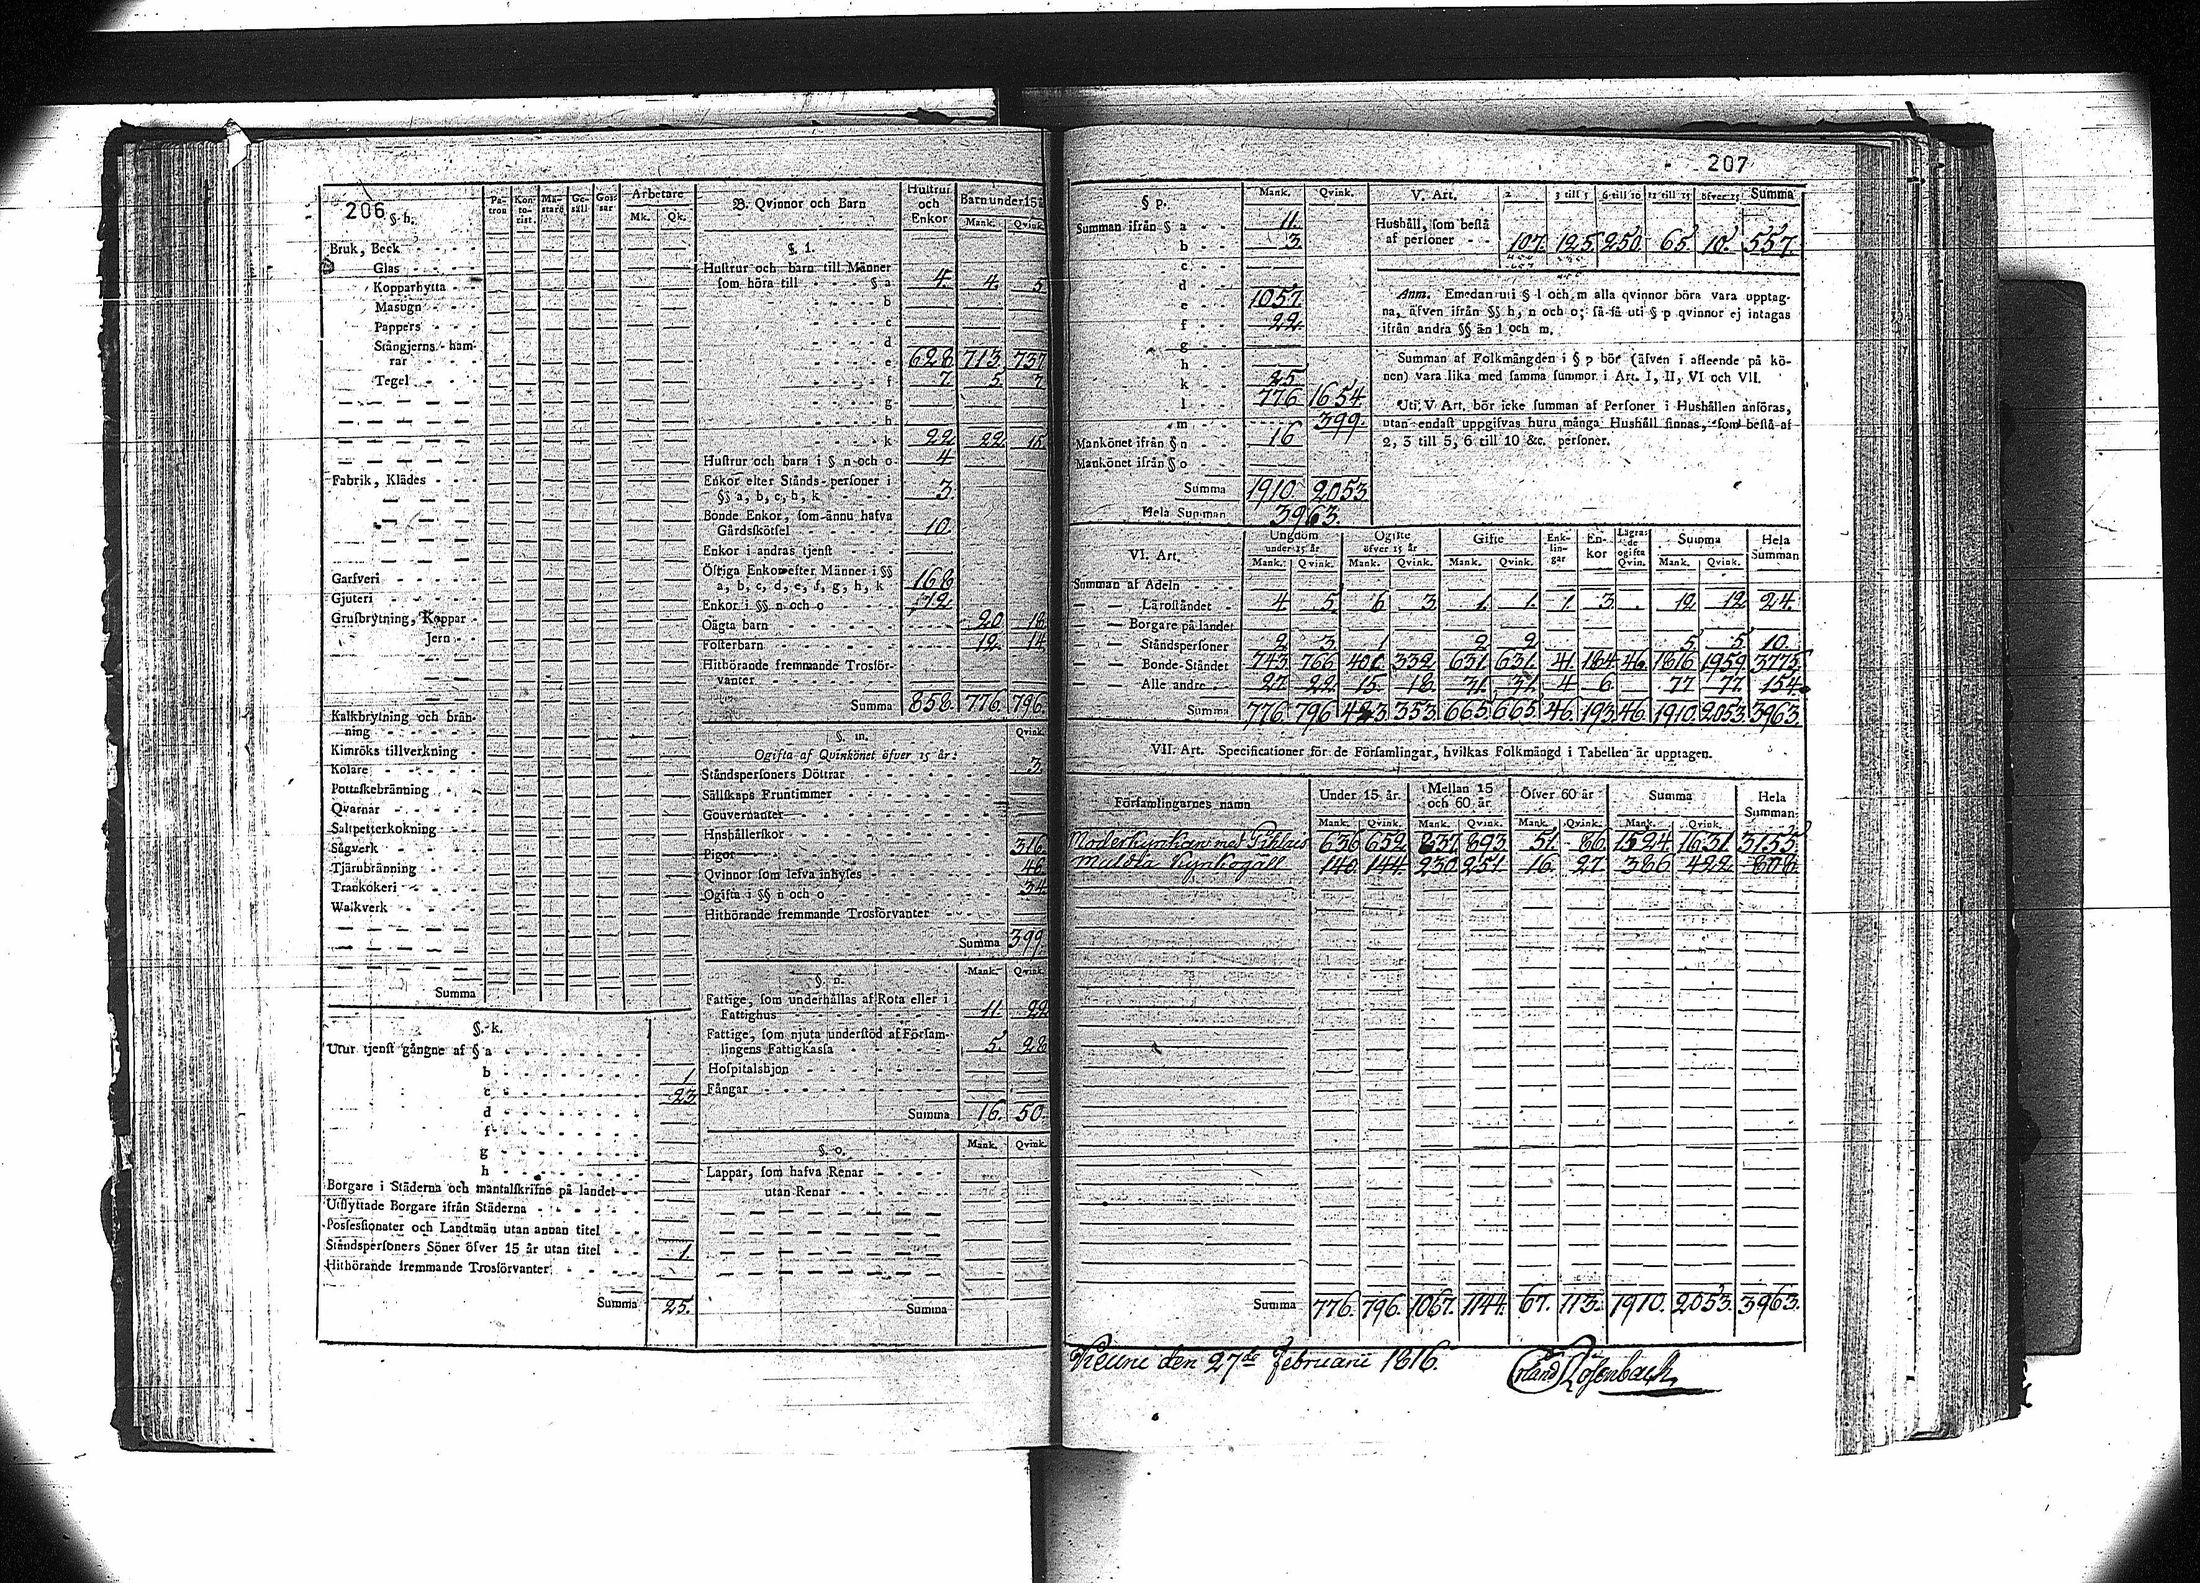 206
§ h.
Patron Kontorist. Mästare Gesäll Gossar Arbetare
Mk. Qk.
Bruk, Beck
Glas
Kopparhytta
Masugn
Pappers
Stångjerns-hamrar
Tegel
Fabrik, Klädes
Garfveri
Gjuteri
Grufbrytning, Koppar
Jern
Kalkbrytning och bränning
Kimröks tillverkning
Kolare
Pottaskebränning
Qvarnar
Saltpetterkokning
Sågverk
Tjärubränning
Trankokeri
Walkverk
Summa
§. k.
Utur tjenst gångne af § a
b 1
c 23
d
f
g
h
Borgare i Städerna och mantalskrifne på landet
Utflyttade Borgare ifrån Städerna
Possessionater och Landtmän utan annan titel
Ståndspersoners Söner öfver 15 år utan titel 1.
Hithörande fremmande Trosförvanter
Summa 25.
B. Qvinnor och Barn
Hustrur och Enkor
Barn under 15 å
Mank. Qvink.
§. l.
Hustrur och barn till Männer
som höra till § a 4. 4. 5
b
c
d
e 628 713 737
f 7 5 7
g
h
k 22 22 15
Hustrur och barn i § n och o 4
Enkor efter Stånds-personer i
§§ a, b, c, h, k 3.
Bonde Enkor, som ännu hafva
Gårdsskötsel 10.
Enkor i andras tjenst
Öfriga Enkor efter Männer i §§
a, b, c, d, e, f, g, h, k 168
Enkor i §§ n och o 12
Oägta barn 20 18
Fosterbarn 12. 14
Hithörande fremmande Trosförvanter
Summa 858. 776. 796
§. m.
Qvink.
Ogifta af Qvinkönet öfver 15 år:
Ståndspersoners Döttrar 3
Sällskaps Fruntimmer
Gouvernanter
Hushållerskor
Pigor 316
Qvinnor som lefva inhyses 46
Ogifta i §§ n och o 34
Hithörande fremmande Trosförvanter
Summa 399.
§. n.
Mank. Qvink.
Fattige, som underhållas af Rota eller i
Fattighus 11. 22
Fattige, som njuta understöd af Församlingens Fattigkassa 5. 28
Hospitalshjon
Fångar
Summa 16. 50
§. o.
Mank. Qvink.
Lappar, som hafva Renar
utan Renar
Summa
207
§ p. Mank. Qvink.
Summan ifrån § a 11.
b 3.
c
d
e 1057.
f 22
g
h
k 25
l 776 1654
m 399.
Mankönet ifrån § n 16
Mankönet ifrån § o
Summa 1910. 2053
Hela Summan 3963.
V. Art. 2 3 till 5 6 till 10 11 till 15 öfver 15 Summa
Hushåll, som bestå
af personer 107. 125. 250. 65. 10. 557.
Anm. Emedan uti § l och m alla qvinnor böra vara upptagna, äfven ifrån §§ h, n och o; få-så uti § p qvinnor ej intagas
ifrån andra §§ än l och m.
Summan af Folkmängden i § p bör (äfven i afseende på könen) vara lika med samma summor i Art. I, II, VI och VII.
Uti V Art. bör icke summan af Personer i Hushållen anföras,
utan endast uppgifvas huru många Hushåll finnas, som bestå af
2, 3 till 5, 6 till 10 &c. personer.
VI. Art. Ungdom under 15 år Ogifte öfver 15 år Gifte Enklingar Enkor Lägrade ogifta Qvin. Summa Hela Summan
Mank. Qvink. Mank. Qvink. Mank. Qvink. Mank. Qvink.
Summan af Adeln
Läroståndet 4 5. 6 3 1. 1. 1. 3. 12 12 24.
Borgare på landet
Ståndspersoner 2 3. 1 2 2 5. 5. 10.
Bonde-Ståndet 743. 766. 401. 332. 631. 631. 41. 184. 46. 1816 1959 3775.
Alle andre 27. 22. 15. 18. 31. 31. 4 6. 77 77. 154.
Summa 776. 796. 423. 353. 665. 665. 46. 193. 46. 1910. 2053. 3963.
VII. Art. Specificationer för de Församlingar, hvilkas Folkmängd i Tabellen är upptagen.
Församlingarnes namn Under 15 år. Mellan 15 och 60 år Öfver 60 år Summa Hela Summan
Mank. Qvink. Mank. Qvink. Mank. Qvink. Mank. Qvink.
Moderkyrkan med 636 652. 837. 893. 51. 86. 1524. 1631. 3155.
Muldia 140. 144. 230. 251. 16. 27. 386 422. 808.
Summa 776. 796. 1067. 1144. 67. 113. 1910. 2053. 3963.
den 27de Februarii 1816.
Erland Rosenback